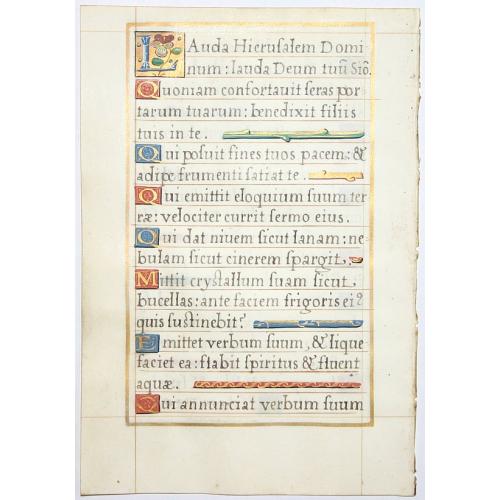 LAuda Hierusalem Domi
num: lauda Deum tuū Siō.
Quoniam confortauit seras por
tarum tuarum: benedixit filiis
tuis in te.
Qui posuit fines tuos pacem: &
adipe frumenti satiat te.
Qui emittit eloquium suum ter
ræ: velociter currit sermo eius.
Qui dat niuem sicut lanam: ne
bulam sicut cinerem spargit.
Mittit crystallum suam sicut
bucellas: ante faciem frigoris ei9
quis sustinebit?
Emittet verbum suum, & lique
faciet ea: flabit spiritus & fluent
aquæ.
Qui annunciat verbum suum